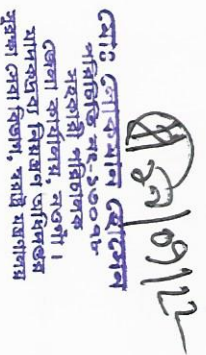 মোঃ লোকমান হোসেন
পরিচিতি নং-১৩০৭৮
সহকারী পরিচালক
জেলা কার্যালয়, নওগাঁ।
মাদকদ্রব্য নিয়ন্ত্রণ অধিদপ্তর
সুরক্ষা সেবা বিভাগ, স্বরাষ্ট্র মন্ত্রণালয়